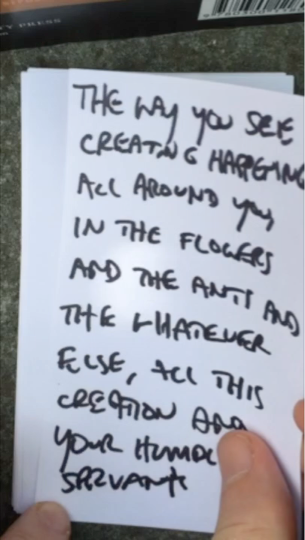 Y PRESS
THE WAY YOU SEE
CREATING HAPPENING
ALL AROUND YOU,
IN THE FLOWERS
AND THE ANTS AND
THE WHATEVER
ELSE, ALL THIS
CREATION AND
YOUR HUMBL
SERVANTS